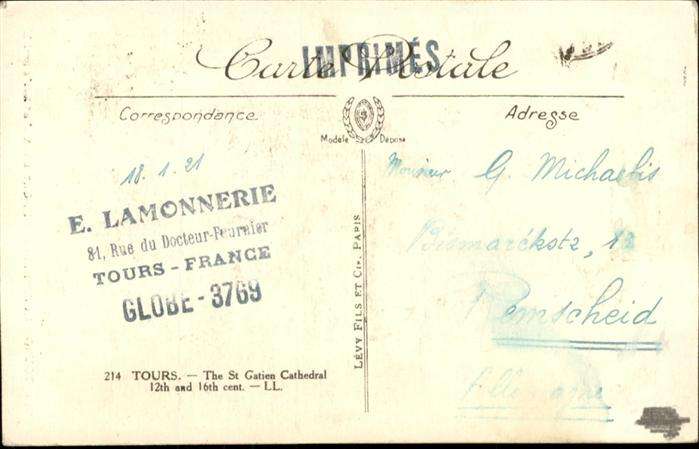 Carte Postale
IMPRIMÉS
Correspondance
Adresse
Modèle Déposé
18.1.21
E. LAMONNERIE
81, Rue du Docteur-Fournier
TOURS - FRANCE
GLOBE - 3769
214 TOURS. — The St Gatien Cathedral
12th and 16th cent. — LL.
LÉVY FILS ET Cie, PARIS
Monsieur G. Michaelis
Bismarckstr, 12
Remscheid
Allemagne